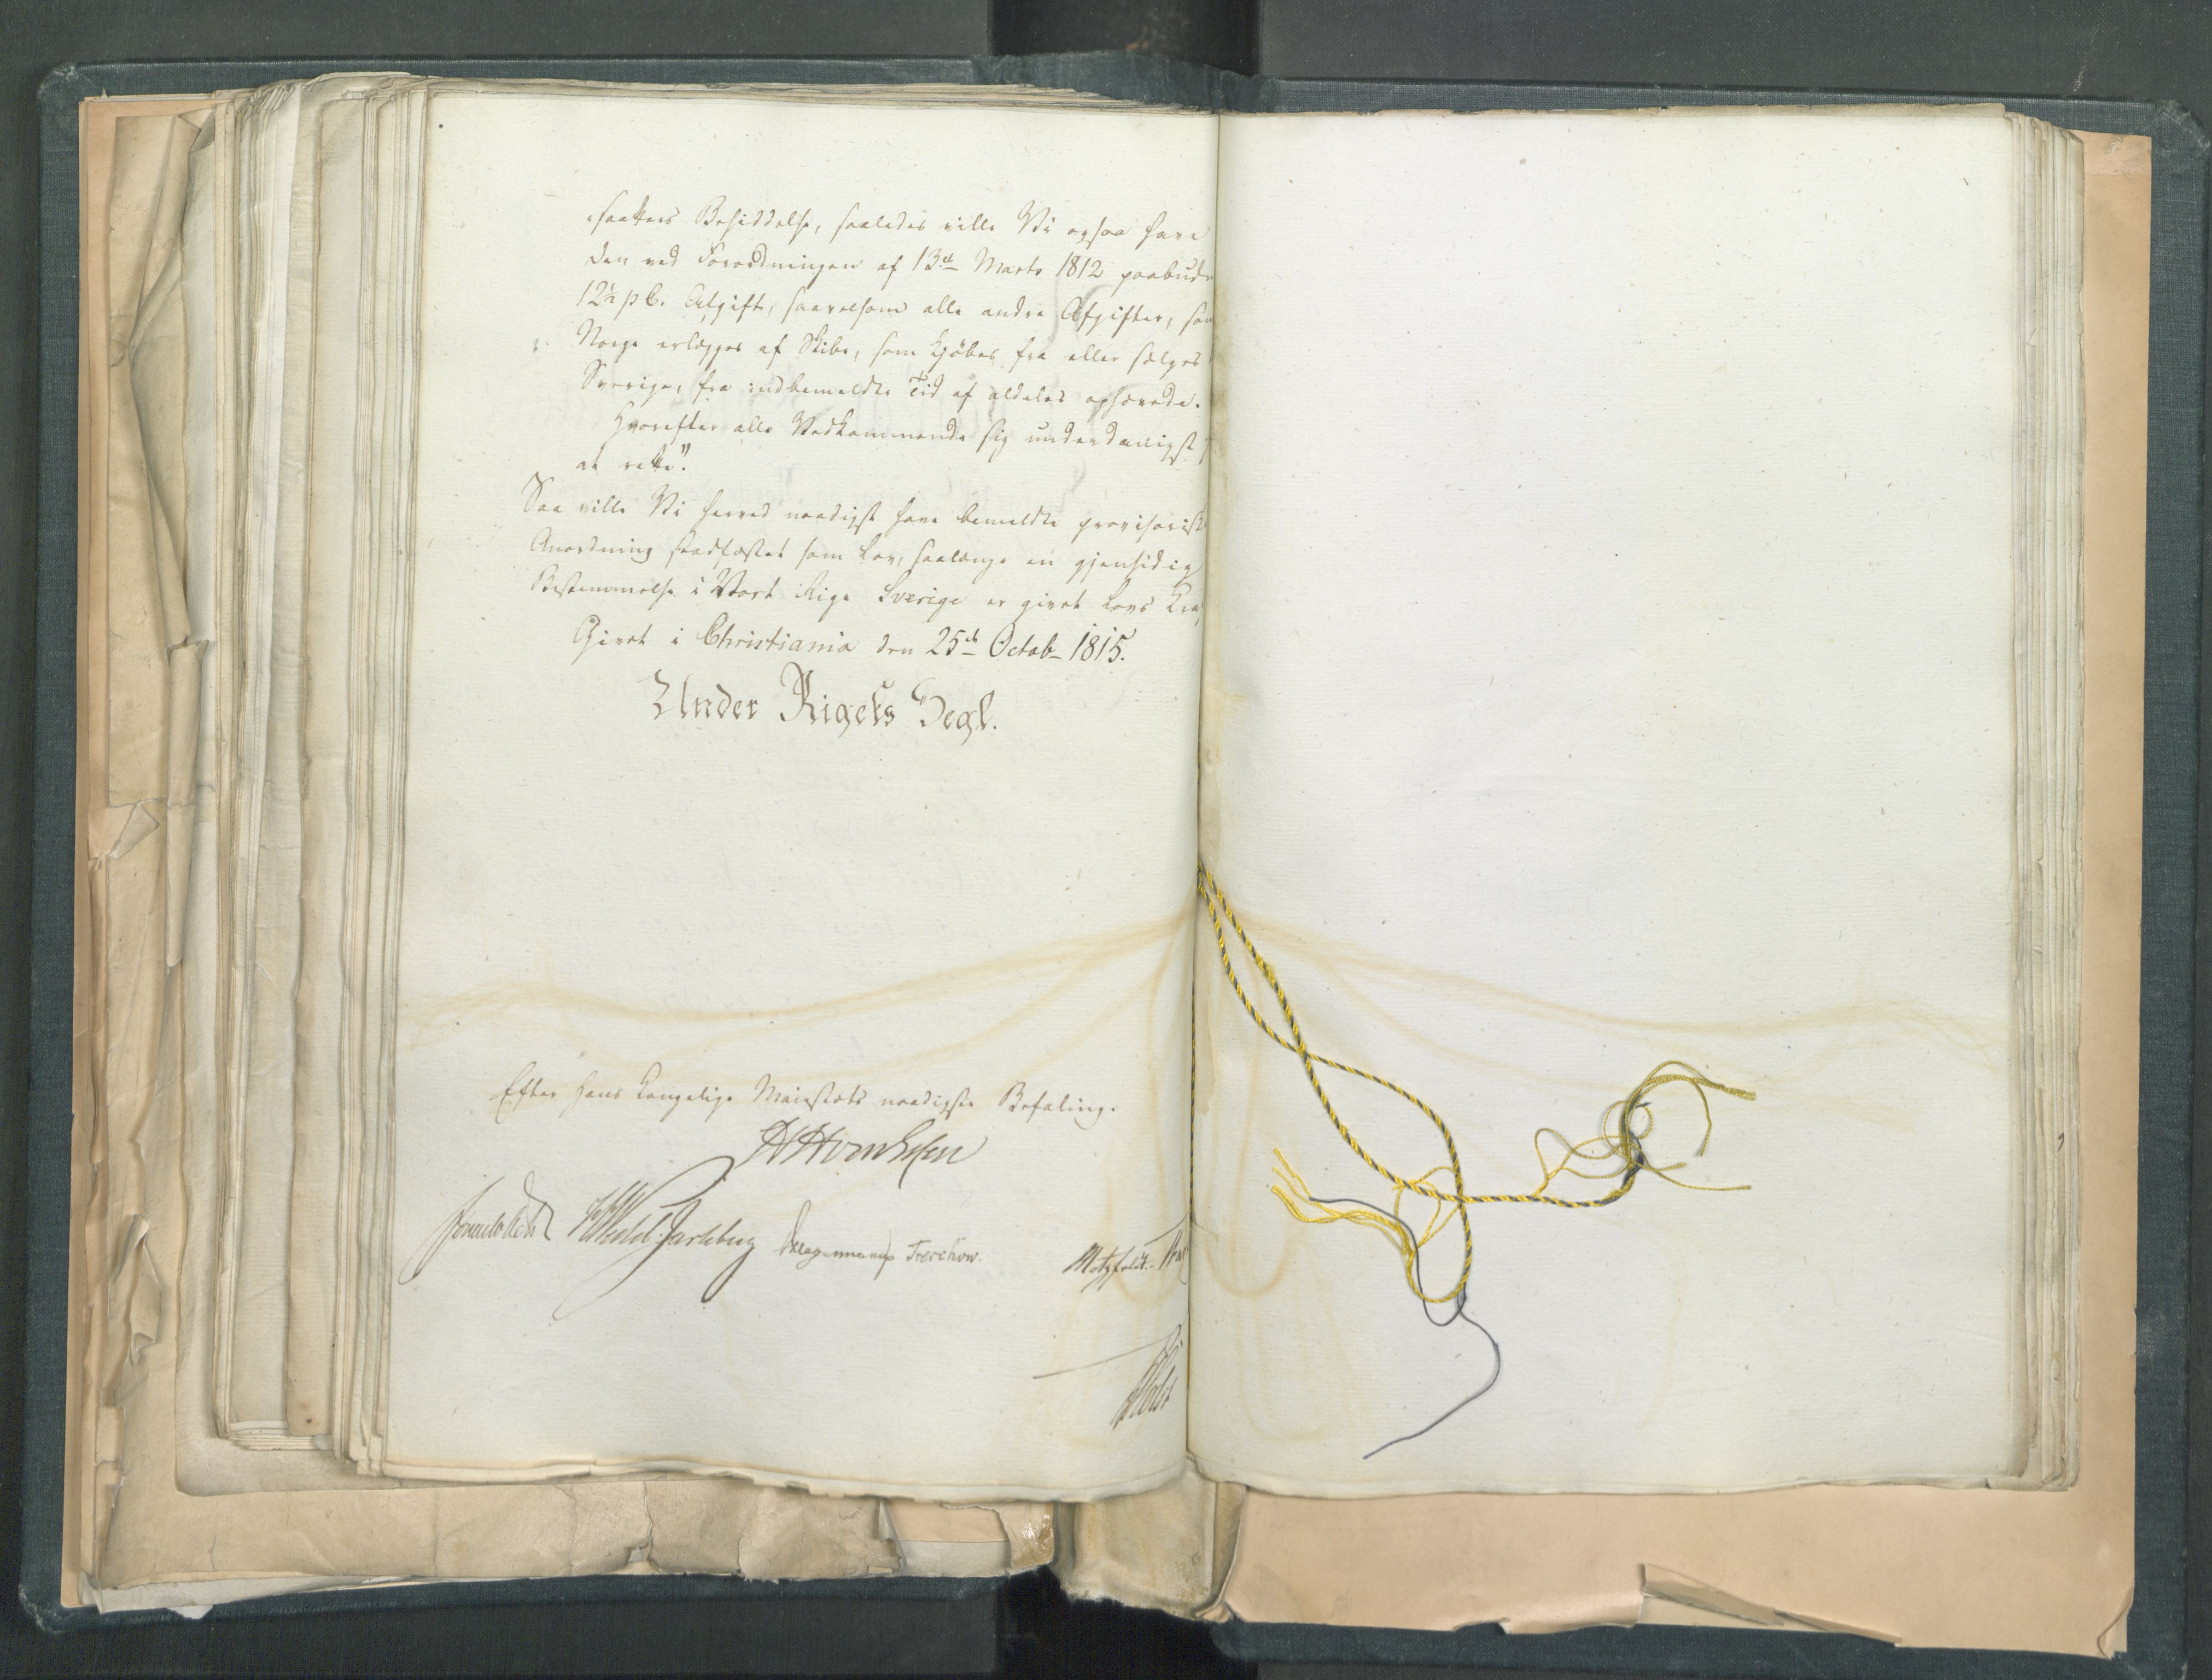 -saatters Besiddelse, saaledes ville Vi ogsaa have
den ved Forordningen af 13de Marts 1812 paabudne
12½ p C. Afgift, saavelsom alle andre Afgifter, som
Norge erlægges af Skibe, som kjøbes fra eller sælges
Sverige, fra indbemeldte Tid af aldeles ophævede.
Hvorefter alle Vedkommende sig underdanigst
at rette".
Saa ville Vi herved naadigst have bemeldte provisoriske
Anordning stadfæstet som Lov, saalænge en gjensidig
Bestemmelse i Vort Rige Sverige er givet Lovs Kra
Givet i Christiania den 25de Octob- 1815.
Under Rigets Segl.
Efter Hans Kongelige Maiestæts naadigste Befaling.
Sommerfeldt Wedel-Jarlsberg Treschow. Motzfeldt.
Holst